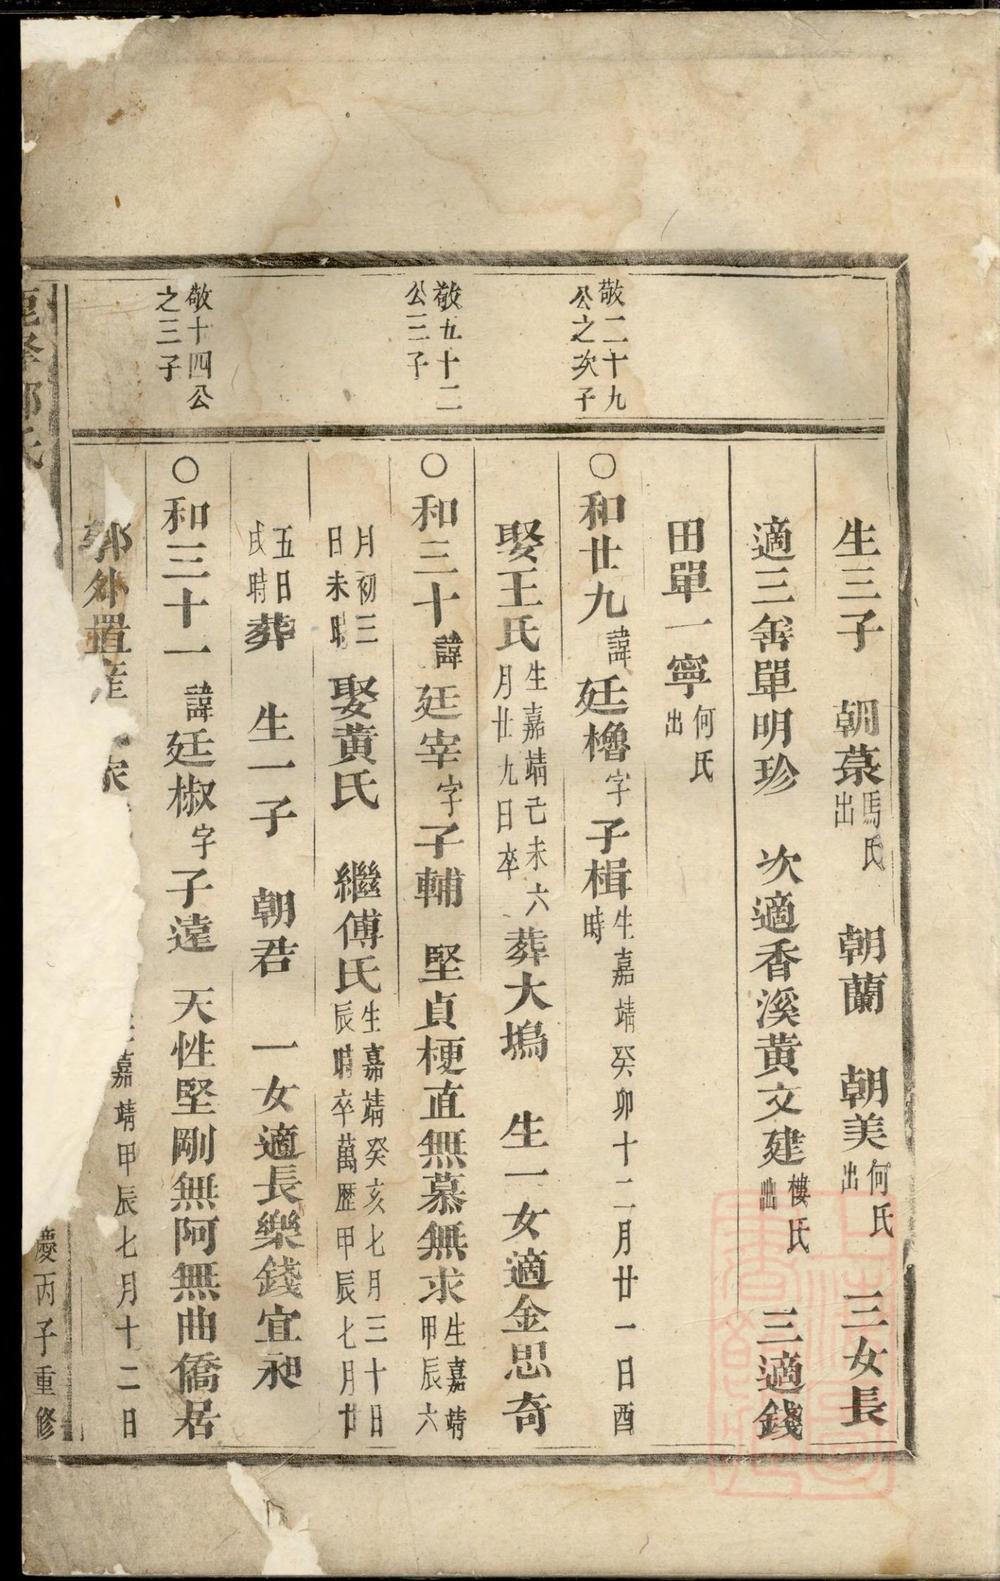 敬二十九
公之次子
敬五十二
公三子
敬十四公
之三子
生三子　朝菉馬氏出　朝蘭　朝美何氏出　三女長
適三舍單明珍　次適香溪黄文建樓氏出　三適錢
田單一寧何氏出
○和廿九諱廷櫓字子楫生嘉靖癸卯十二月廿一日酉時
娶王氏生嘉靖己未六月廿九日卒葬大塢　生一女適金思奇
○和三十諱廷宰字子輔　堅貞梗直無慕無求生嘉靖甲辰六
月初三日未時娶黄氏　繼傅氏生嘉靖癸亥七月三十日辰時卒萬歷甲辰七月廿
五日戌時葬　生一子　朝君　一女適長樂錢宜昶
○和三十一諱廷椒字子遠　天性堅剛無阿無曲僑居
郭外置産　嘉靖甲辰七月十二日
慶丙子重修